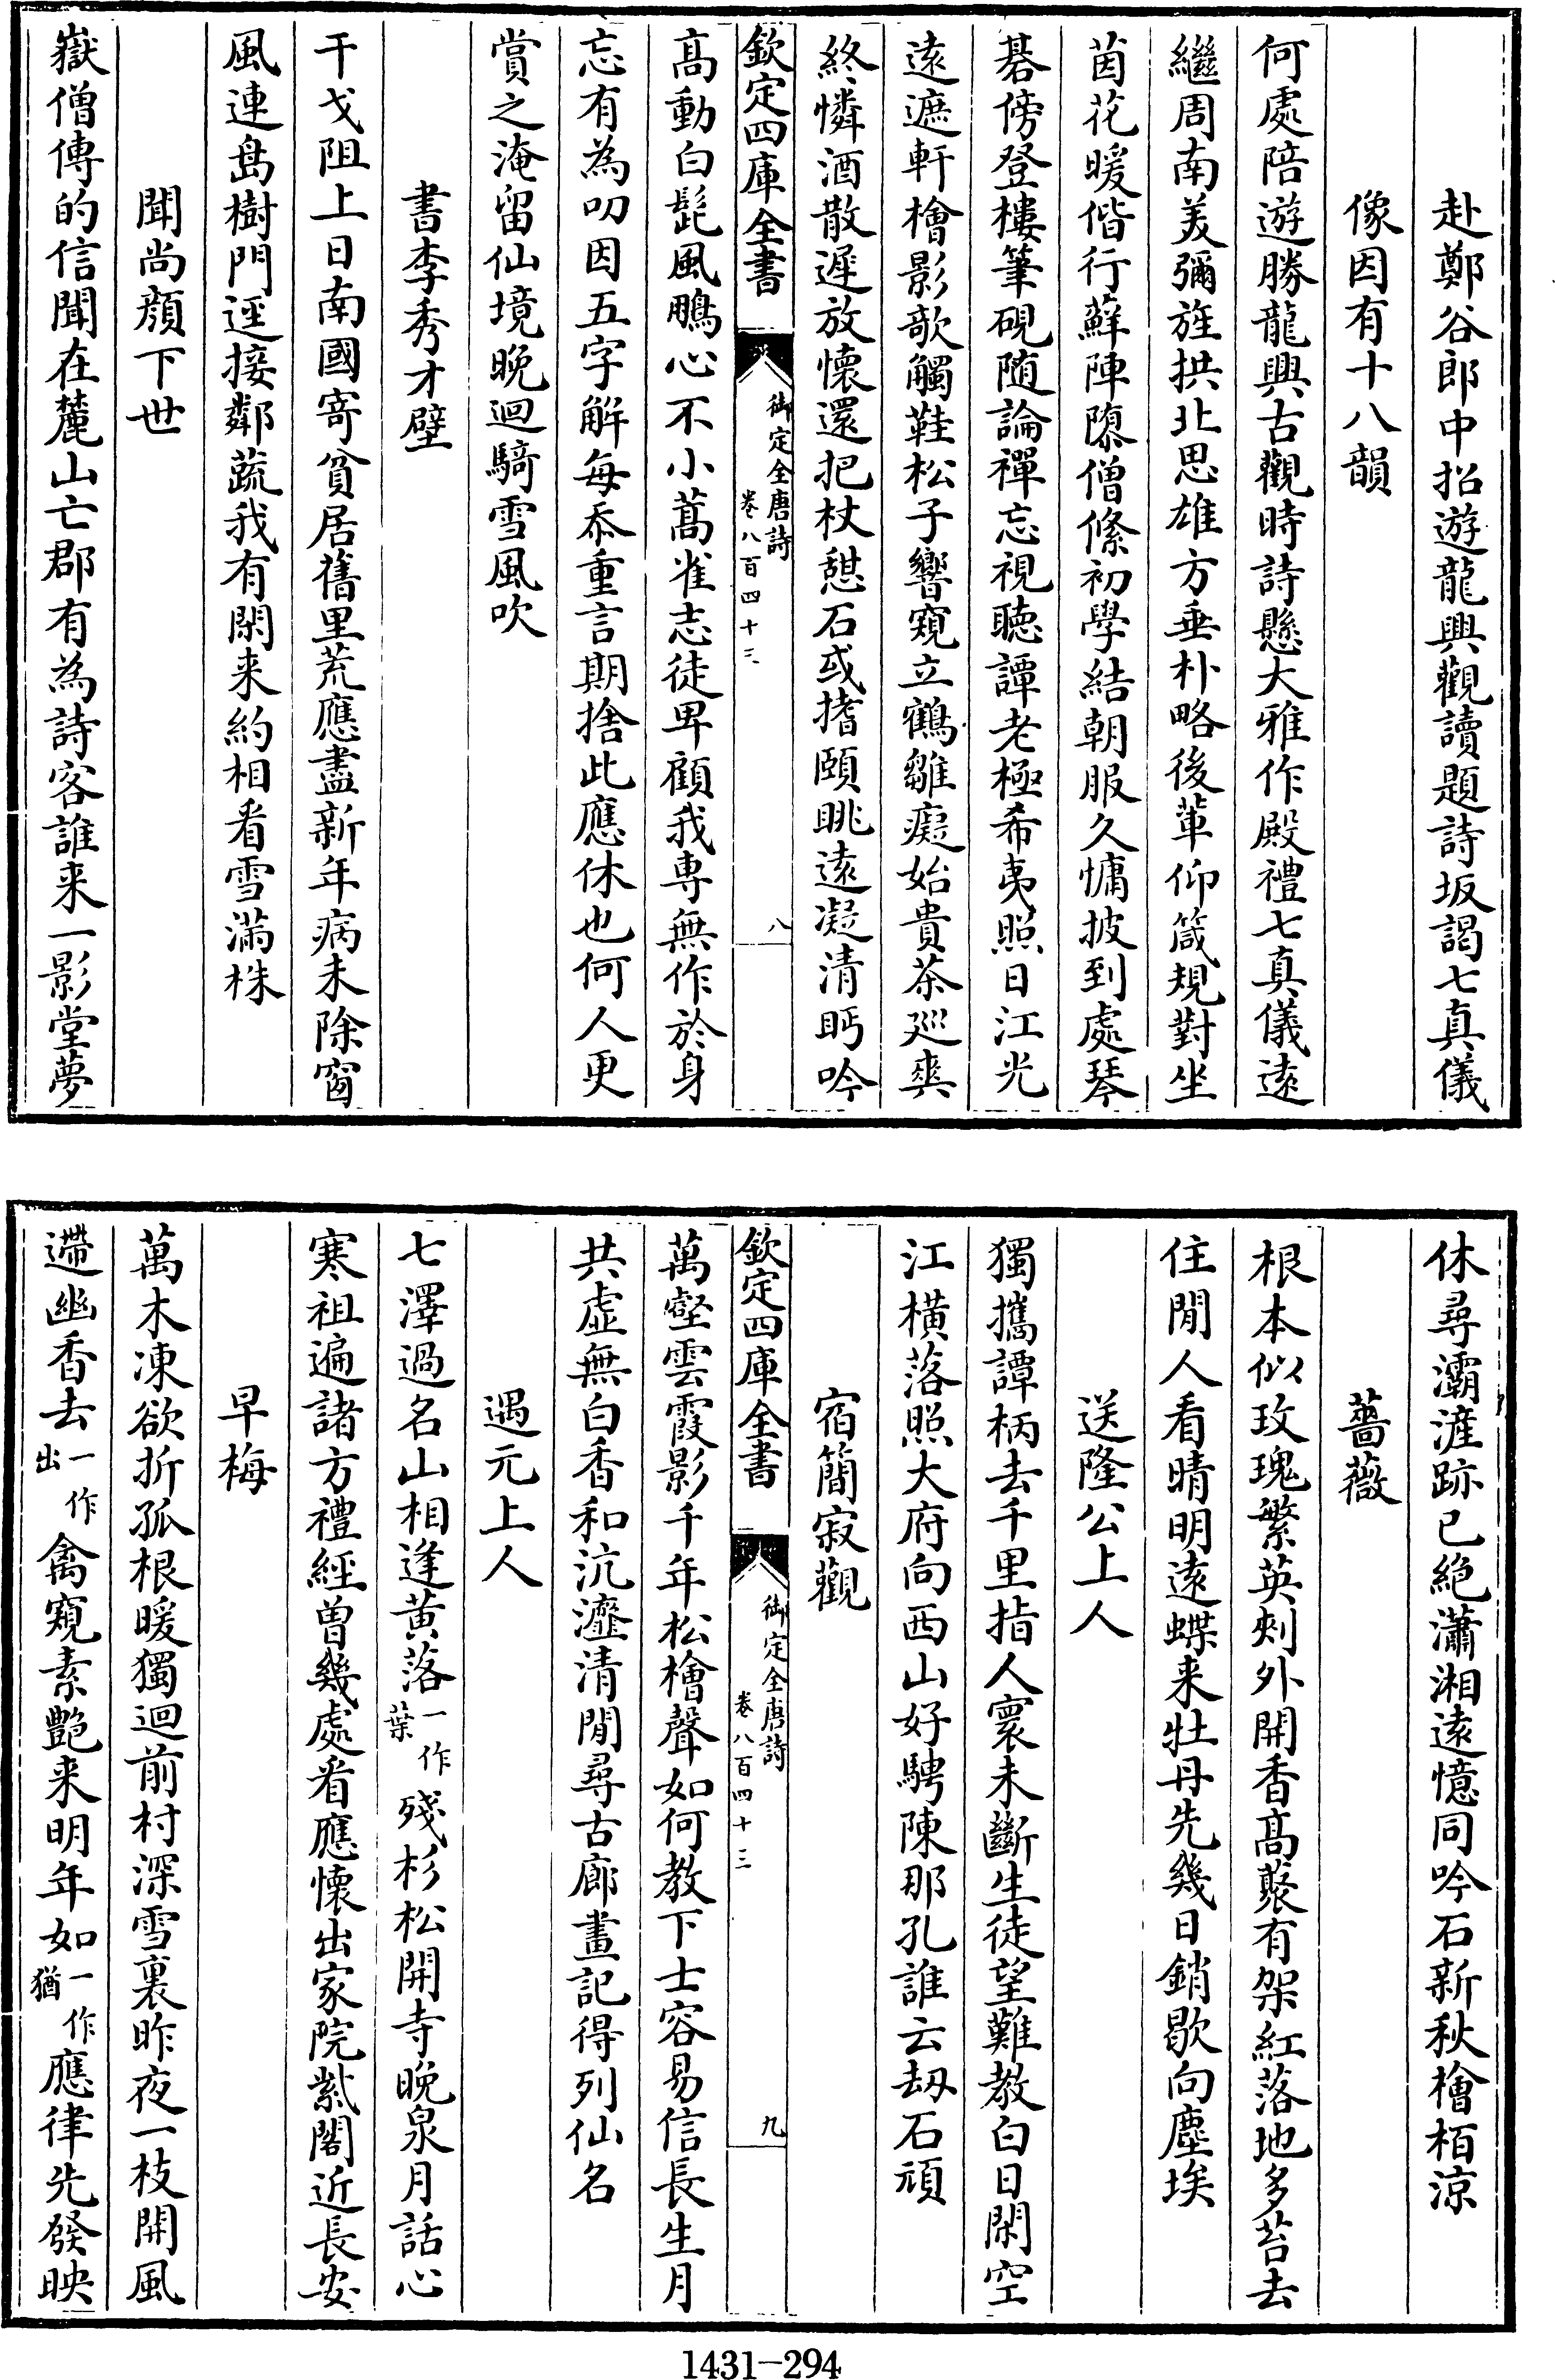 赴鄭谷郎中招遊龍興觀讀題詩坂謁七真儀
像因有十八韻
何處陪遊勝龍興古觀時詩懸大雅作殿禮七真儀遠
繼周南美彌旌拱北思雄方垂朴略後輩仰箴規對坐
茵花暖偕行蘚陣隳僧絛初學結朝服久慵披到處琴
棊傍登樓筆硯随論禪忘視聽譚老極希夷照日江光
遠遮軒檜影欹觸鞋松子響窺立鶴雛癡始貴茶巡爽
終憐酒散遲放懷還把杖憇石或搘頤眺遠凝清眄吟
欽定四庫全書
御定全唐詩
卷八百四十三
八
髙動白髭風鵬心不小蒿雀志徒卑顧我專無作於身
忘有為叨因五字解每忝重言期捨此應休也何人更
賞之淹留仙境晚迴騎雪風吹
書李秀才壁
干戈阻上日南國寄貧居舊里荒應盡新年病未除窗
風連島樹門逕接鄰蔬我有閑来約相看雪滿株
聞尚顔下世
嶽僧傳的信聞在麓山亡郡有為詩客誰来一影堂夢
休尋灞滻跡已絶瀟湘遠憶同吟石新秋檜栢凉
薔薇
根本似玫瑰繁英刺外開香髙藂有架紅落地多苔去
住閒人看晴明遠蝶来牡丹先幾日銷歇向塵埃
送隆公上人
獨攜譚柄去千里指人寰未斷生徒望難教白日閑空
江横落照大府向西山好騁陳那孔誰云刼石頑
宿簡寂觀
欽定四庫全書
御定全唐詩
卷八百四十三
九
萬壑雲霞影千年松檜聲如何教下士容易信長生月
共虚無白香和沆瀣清閒尋古廊畫記得列仙名
遇元上人
七澤過名山相逢黄落一作葉殘杉松開寺晚泉月話心
寒祖遍諸方禮經曽幾處看應懷出家院紫閣近長安
早梅
萬木凍欲折孤根暖獨迴前村深雪裏昨夜一枝開風
遰幽香去一作出禽窺素艶来明年如一作猶應律先發映
1431-294